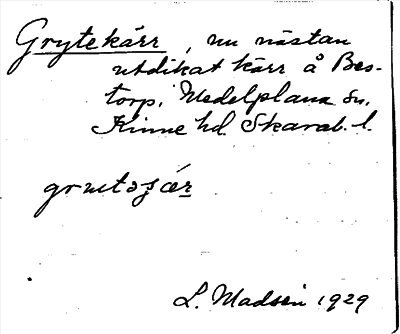 Grytekärr, nu nästan
utdikat kärr å Bes-
torp, Medelplana sn,
Kinne hd. Skarab. l.
L. Madsén 1929